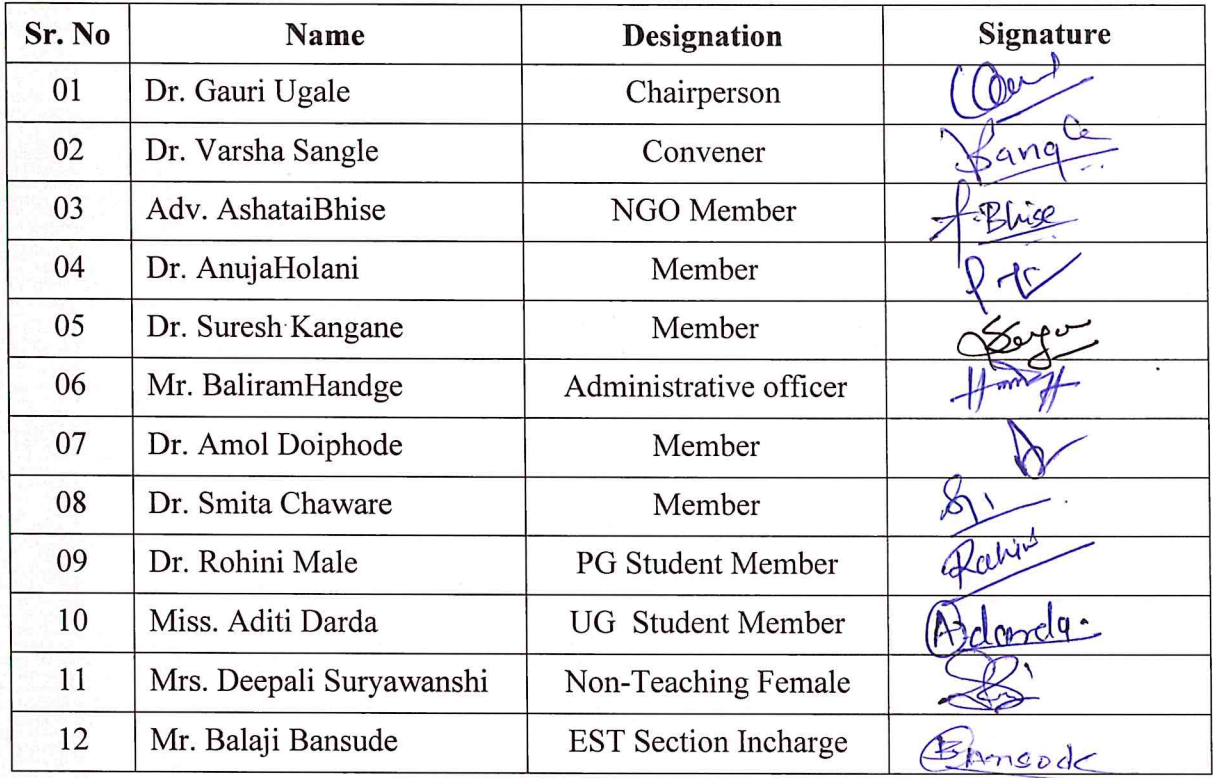 Sr. No Name Designation Signature
01 Dr. Gauri Ugale Chairperson
02 Dr. Varsha Sangle Convener
03 Adv. AshataiBhise NGO Member Bhise
04 Dr. AnujaHolani Member
05 Dr. Suresh Kangane Member
06 Mr. BaliramHandge Administrative officer
07 Dr. Amol Doiphode Member
08 Dr. Smita Chaware Member
09 Dr. Rohini Male PG Student Member
10 Miss. Aditi Darda UG Student Member
11 Mrs. Deepali Suryawanshi Non-Teaching Female
12 Mr. Balaji Bansude EST Section Incharge